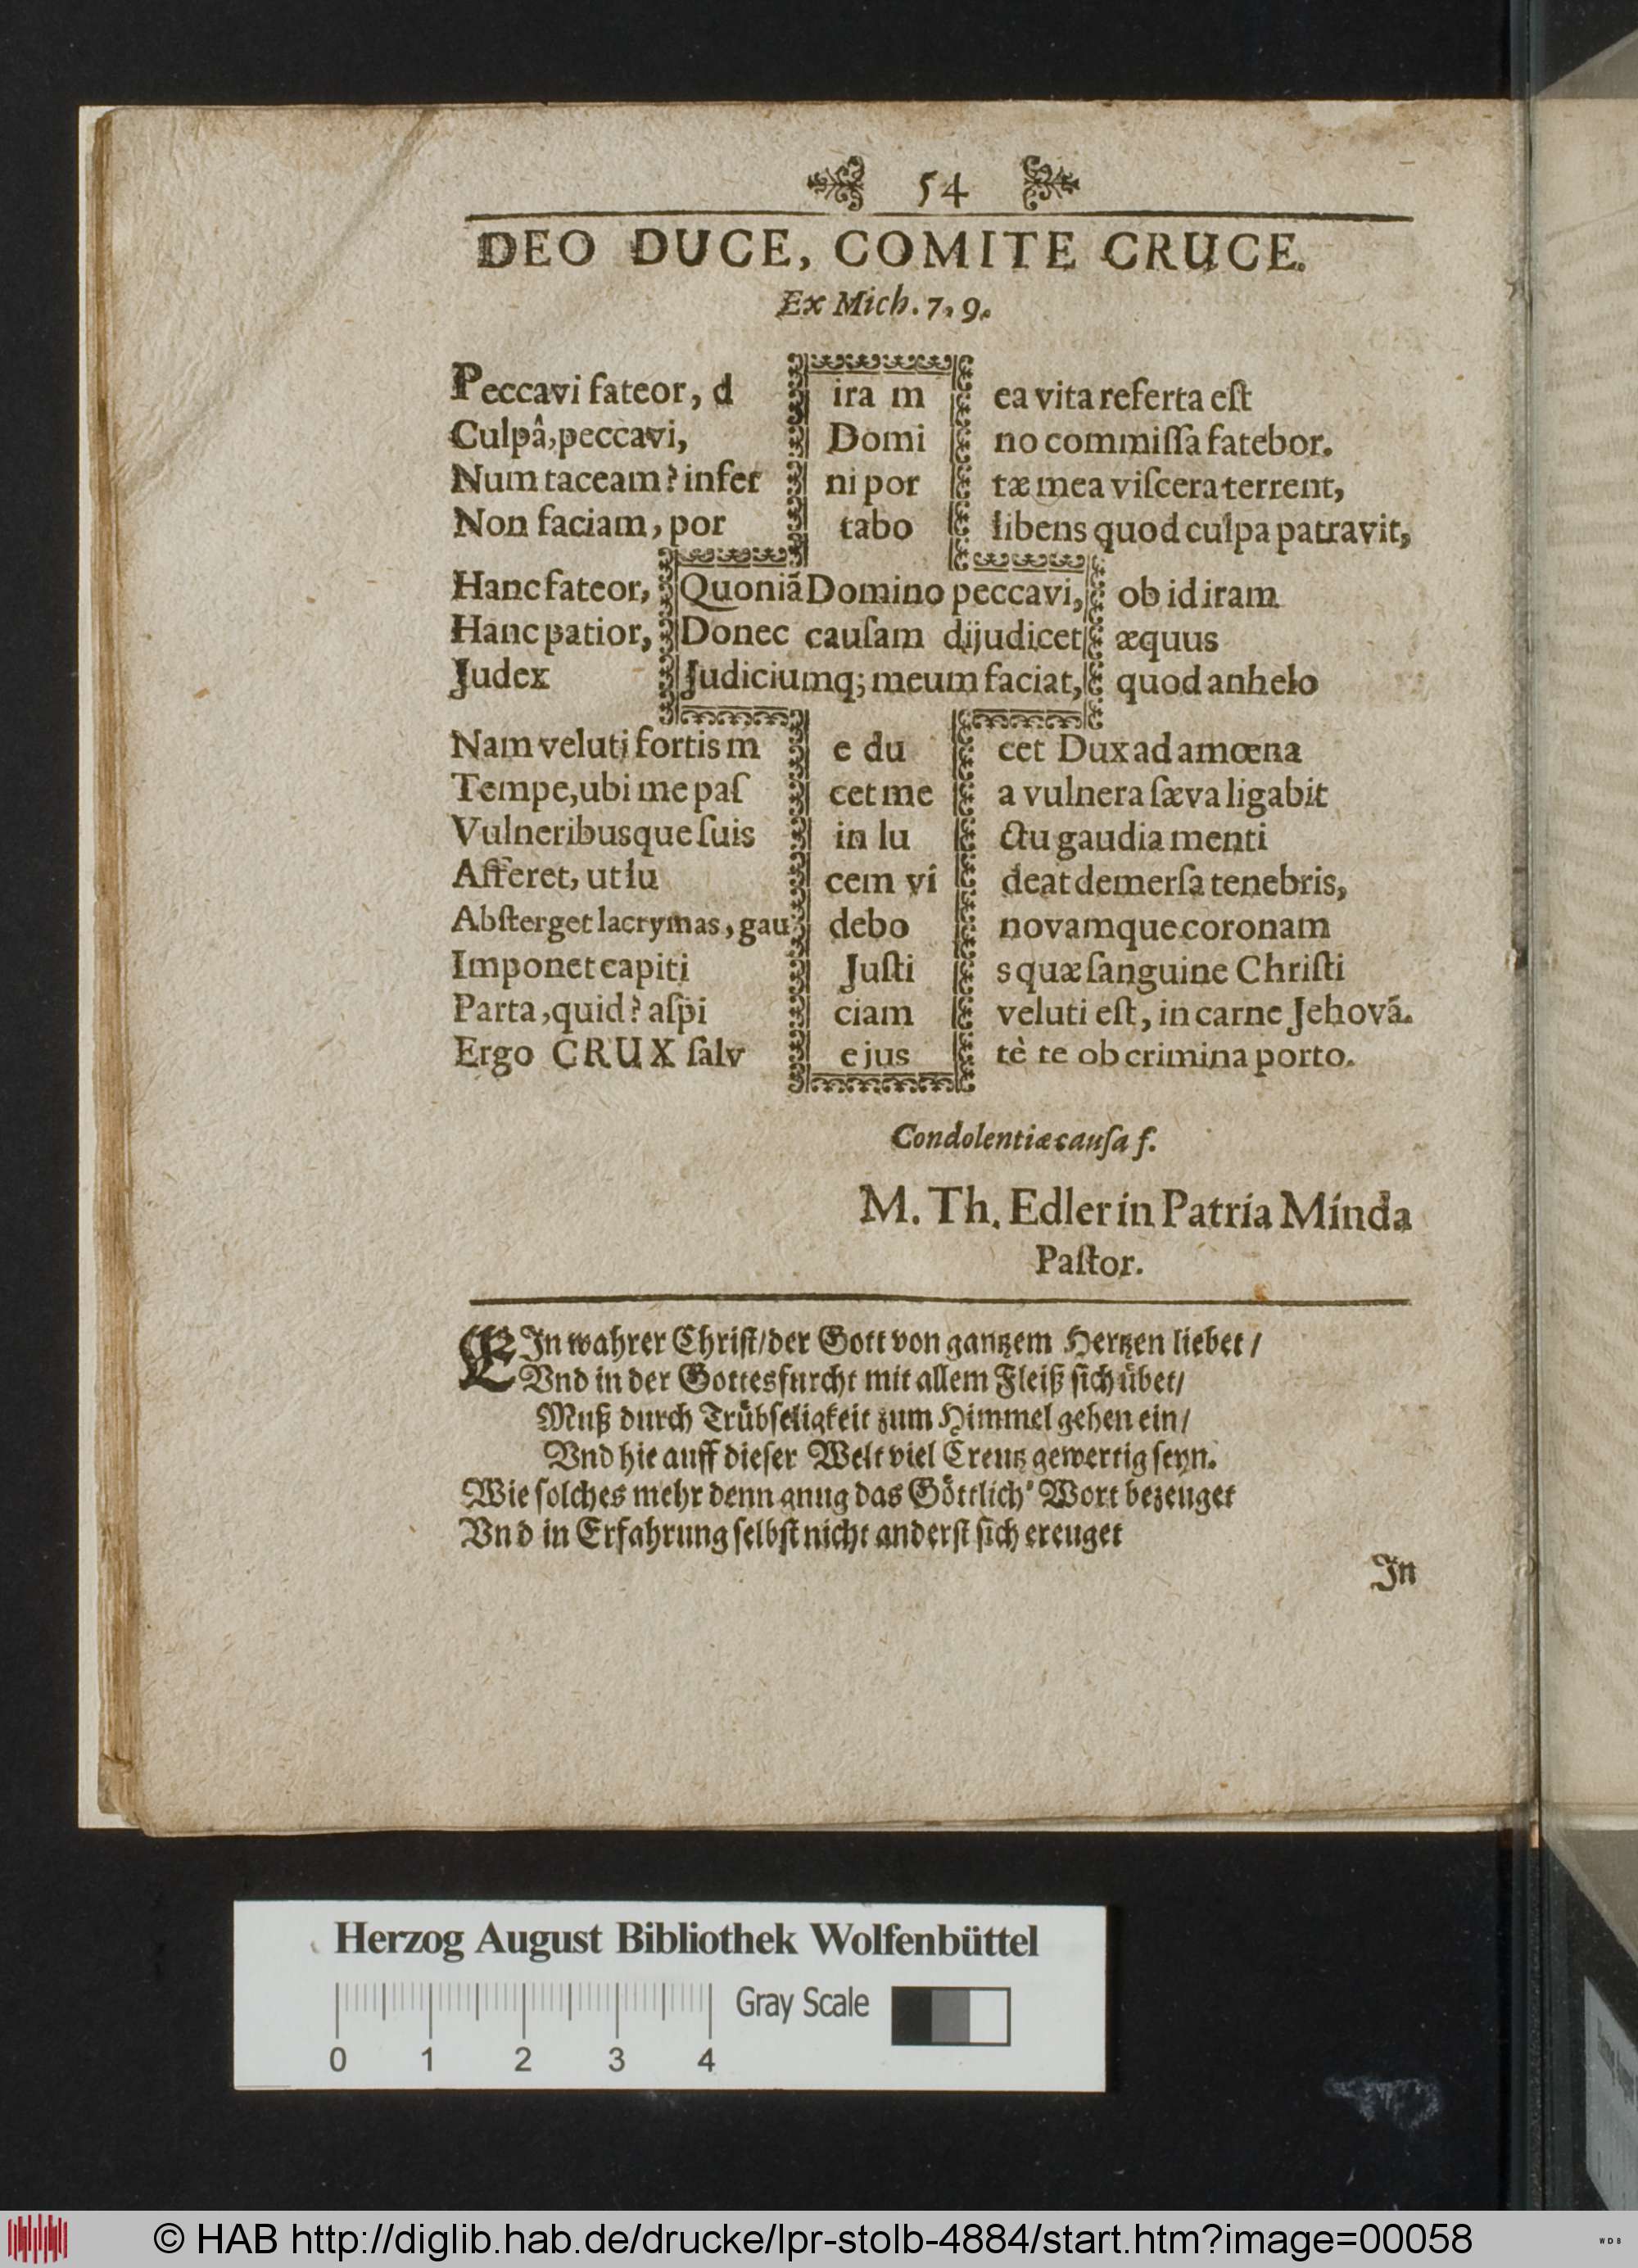 54
DEO DUCE, COMITE CRUCE.
Ex Mich. 7, 9.
Peccavi fateor, d ira m ea vita referta eſt
Culpâ, peccavi, Domi no commiſſa fatebor.
Num taceam? infer ni por tæ mea viſcera terrent,
Non faciam, por tabo libens quod culpa patravit,
Hanc fateor, Quoniã Domino peccavi, ob id iram
Hanc patior, Donec cauſam dijudicet æquus
Judex Judiciumq; meum faciat, quod anhelo
Nam veluti fortis m e du cet Dux ad amœna
Tempe, ubi me paſ cet me a vulnera ſæva ligabit
Vulneribusque ſuis in lu ctu gaudia menti
Afferet, ut lu cem vi deat demerſa tenebris,
Abſterget lacrymas, gau debo novamque coronam
Imponet capiti Juſti s quæ ſanguine Chriſti
Parta, quid? aſpi ciam veluti eſt, in carne Jehovã.
Ergo CRUX ſalv ejus tè te ob crimina porto.
Condolentiæ cauſa f.
M. Th. Edler in Patria Minda
Paſtor.
EIn wahrer Chriſt/ der Gott von gantzem Hertzen liebet /
Vnd in der Gottesfurcht mit allem Fleiß ſich uͤbet/
Muß durch Truͤbſeligkeit zum Himmel gehen ein/
Vnd hie auff dieſer Welt viel Creutz gewertig ſeyn.
Wie ſolches mehr denn gnug das Goͤttlich' Wort bezeuget
Vnd in Erfahrung ſelbſt nicht anderſt ſich ereuget
In
Herzog August Bibliothek Wolfenbüttel
Gray Scale
0 1 2 3 4
© HAB http://diglib.hab.de/drucke/lpr-stolb-4884/start.htm?image=00058
WDB